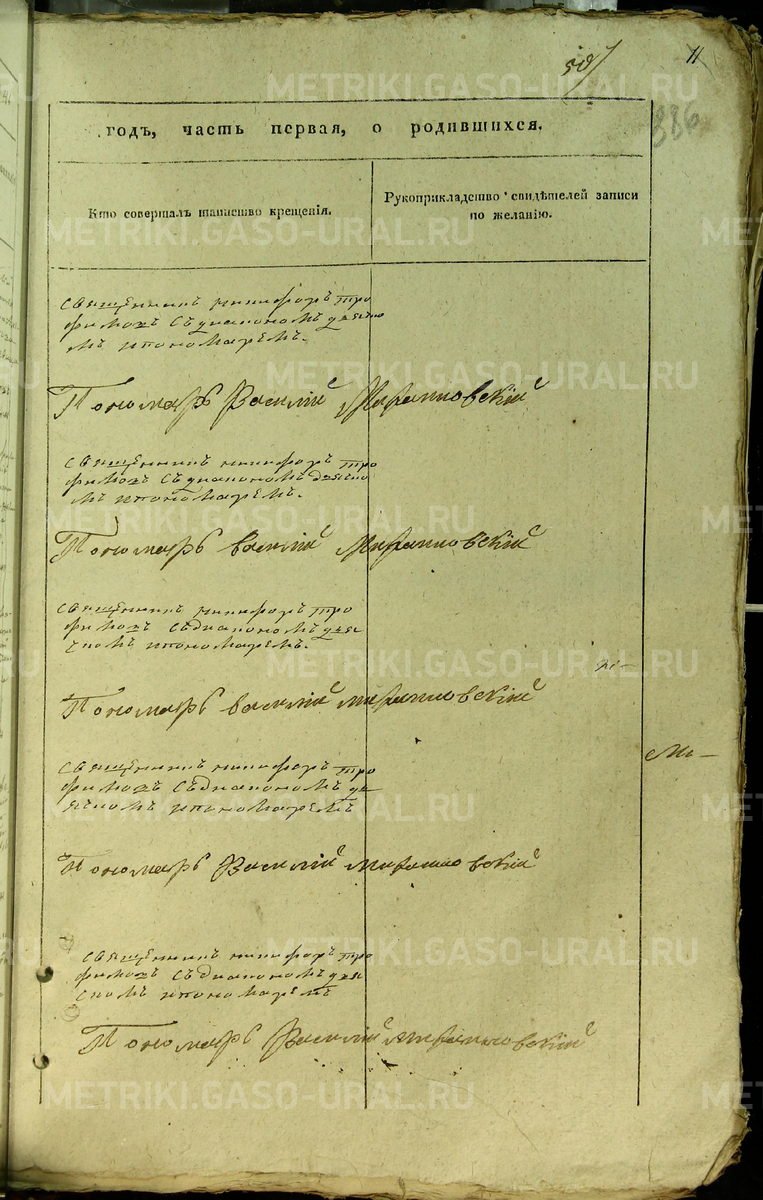 11
годъ, часть первая, о родившихся.
Кто совершалъ таинство крещенія.
Рукоприкладство свидѣтелей записи
по желанію.
священникъ никифоръ тро
фимовъ съ диакономъ дьячко
мъ ипономаремъ.
Пономарь Василий
священникъ никифоръ тро
фимовъ съ диакономъ дьячко
мъ ипономаремъ.
Пономарь василий
священникъ никифоръ тро
фимовъ съ диакономъ дья
чкомъ ипономаремъ.
Пономарь василий
священникъ никифоръ тро
фимовъ съ диакономъ дь
ячкомъ ипономаремъ
Пономарь Василий
священникъ никифоръ тро
фимовъ съ диакономъ дья
чкомъ ипономаремъ
Пономарь Василий
METRIKI.GASO-URAL.RU